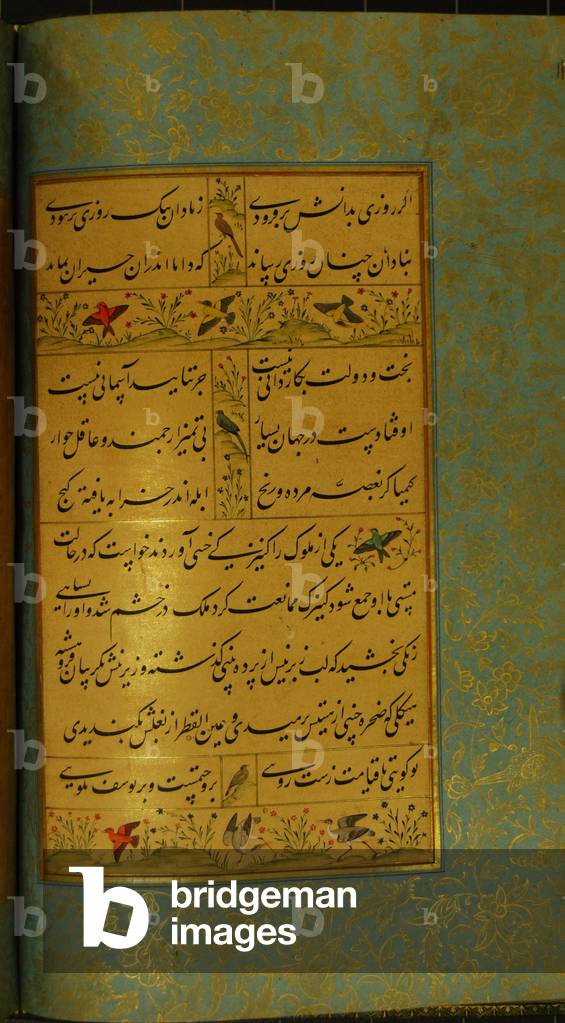 اگر روزی بدانش بر فزودی ز نادان تنک روزی تر نبودی
بنادان چنان روزی رساند که دانا اندران حیران بماند
بخت و دولت بکاردانی نیست جز بتایید آسمانی نیست
اوفتادست در جهان بسیار بی تمیز ارجمند و عاقل خوار
کیمیاگر بغصه مرده و رنج ابله اندر خرابه یافته گنج
یکی از ملوک را کنیزکی ختنی آوردند خواست که در حالت
مستی با او جمع شود کنیزک ممانعت کرد ملک در خشم شد و او را بسیاهی
زنگی بخشید که لب زبرینش از پرده بینی گذشته و زیرینش بگریبان فروهشته
هیکلی که صخره جنی از هیبتش برمیدی و عین القطر از بغلش بگندیدی
تو گویی تا قیامت زشت رویی برو ختمست و بر یوسف نکویی
b bridgeman images